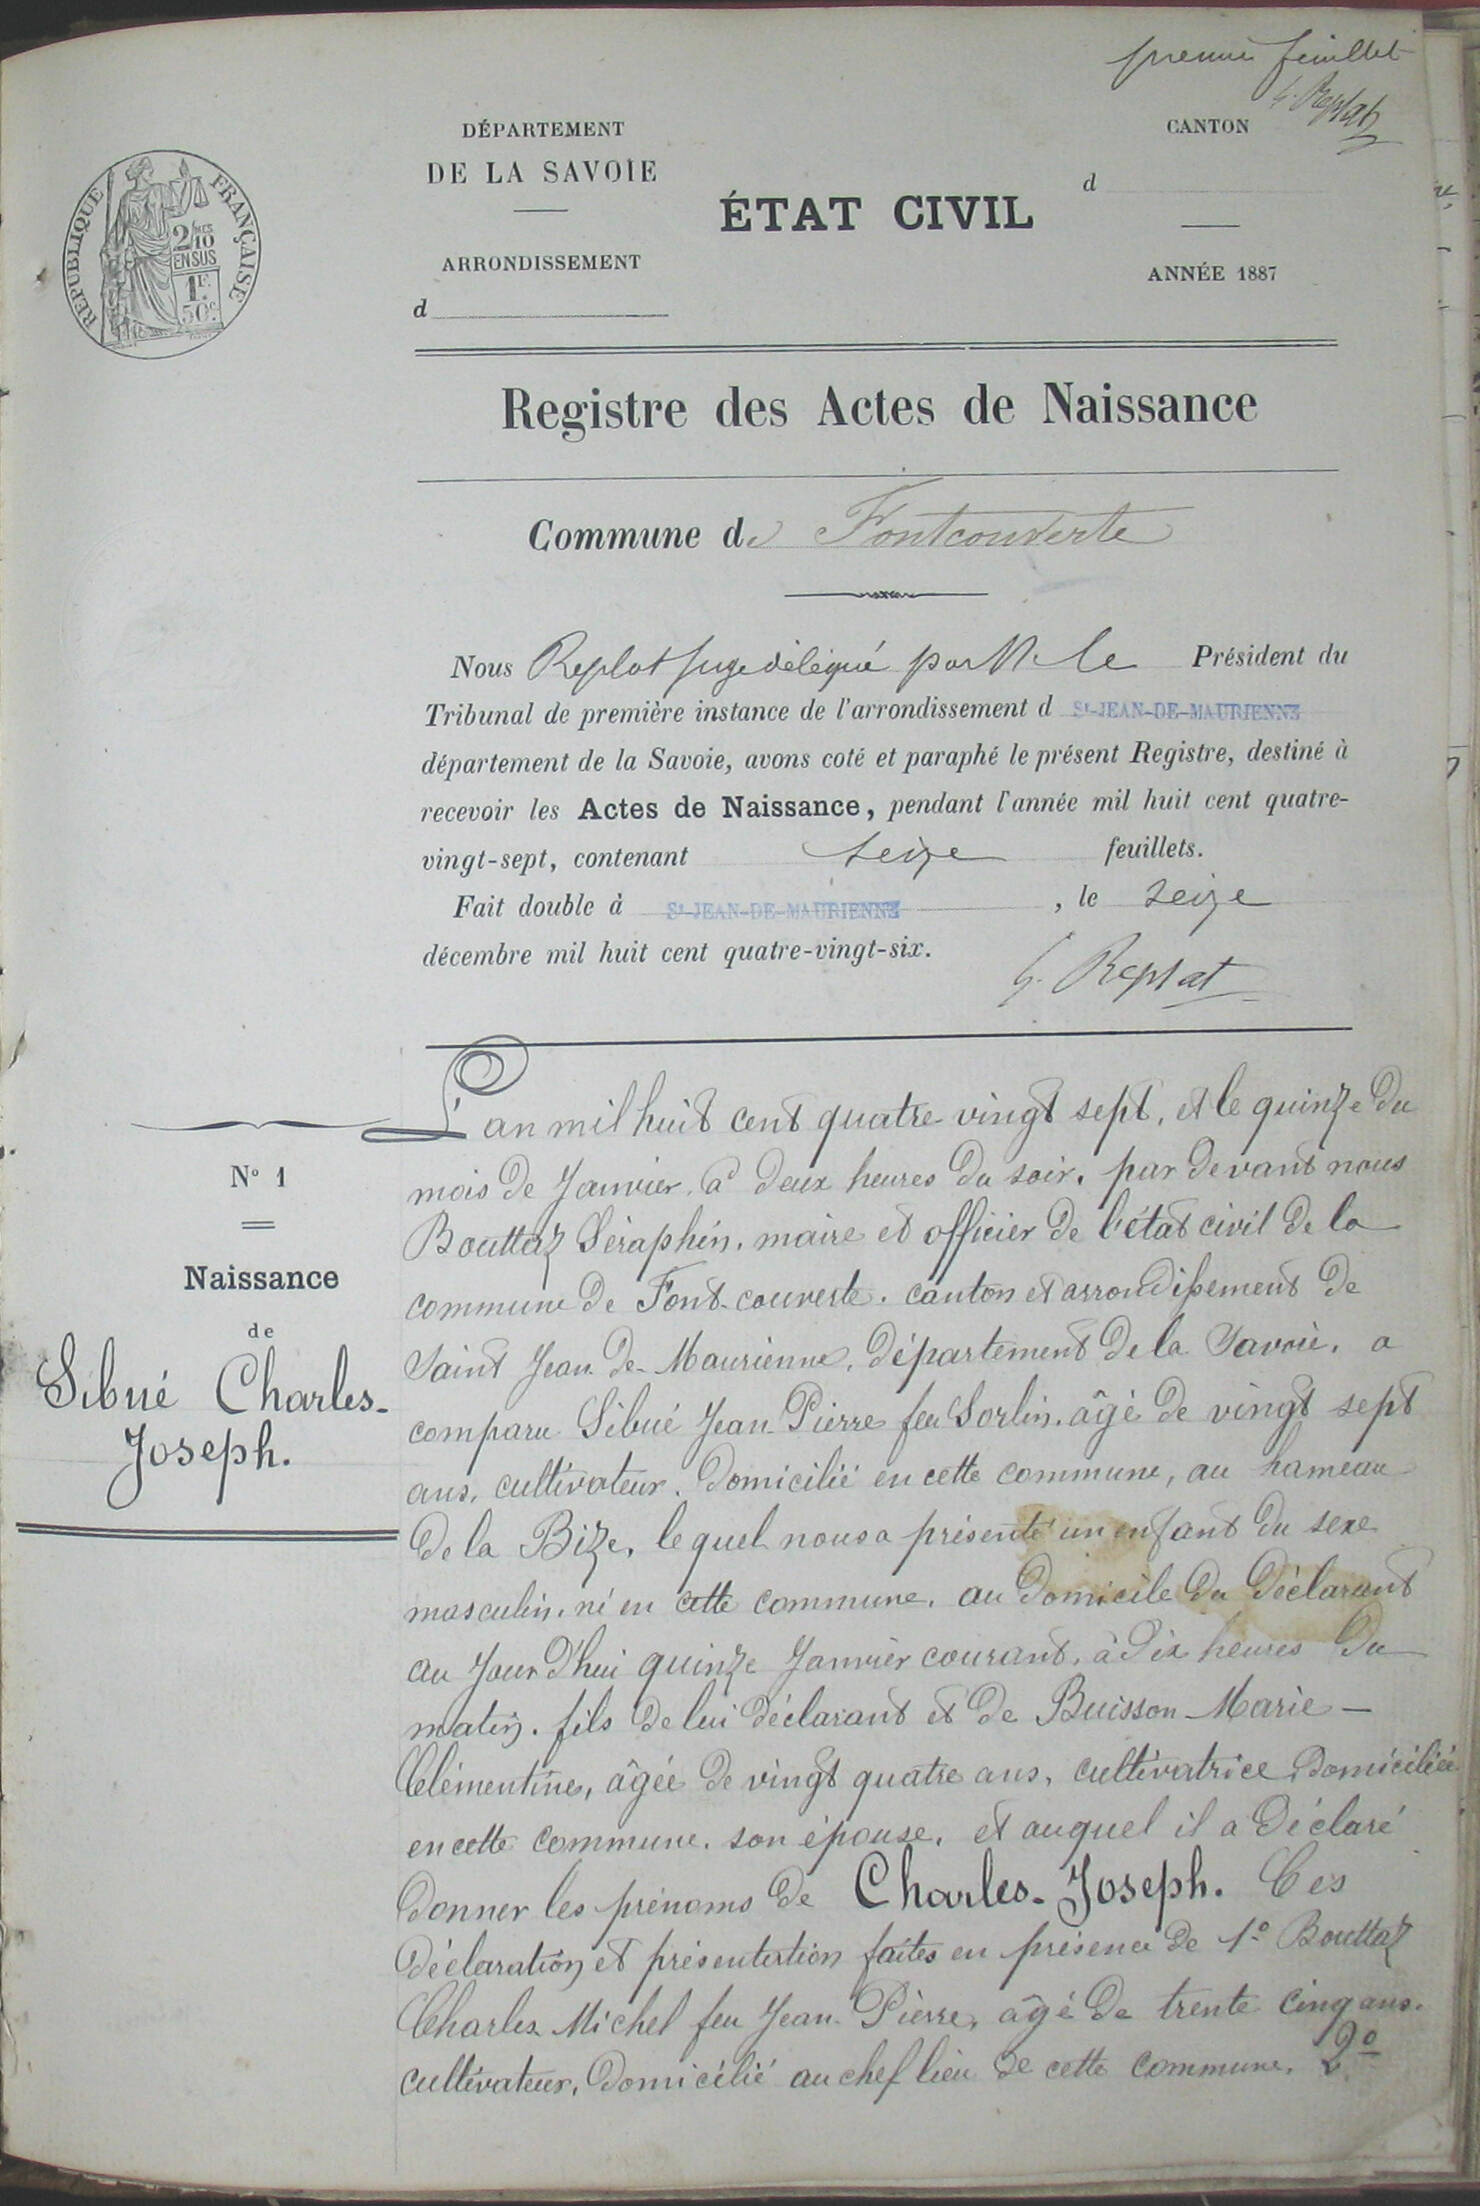 premier feuillet
G. Replat
DÉPARTEMENT
DE LA SAVOIE
ARRONDISSEMENT
d
ÉTAT CIVIL
CANTON
d
ANNÉE 1887
RÉPUBLIQUE FRANÇAISE
2/10 MES
EN SUS
1F.
50c.
Registre des Actes de Naissance
Commune de Fontcouverte
Nous Replat Juge délégué par M. le Président du
Tribunal de première instance de l'arrondissement d St-JEAN-DE-MAURIENNE
département de la Savoie, avons coté et paraphé le présent Registre, destiné à
recevoir les Actes de Naissance, pendant l'année mil huit cent quatre-
vingt-sept, contenant seize feuillets.
Fait double à St-JEAN-DE-MAURIENNE, le seize
décembre mil huit cent quatre-vingt-six.
G. Replat
N° 1
Naissance
de
Sibué Charles-
Joseph.
L'an mil huit cent quatre vingt sept, et le quinze du
mois de Janvier, à deux heures du soir, par devant nous
Bouttaz Séraphin, maire et officier de l'état civil de la
commune de Font-couverte, canton et arrondissement de
Saint Jean-de-Maurienne, département de la Savoie, a
comparu Sibué Jean-Pierre feu Sorlin, âgé de vingt sept
ans, cultivateur, domicilié en cette commune, au hameau
de la Bize, lequel nous a présenté un enfant du sexe
masculin, né en cette commune, au domicile du déclarant
au Jour d'hui quinze Janvier courant, à dix heures du
matin, fils de lui déclarant et de Buisson Marie-
Clémentine, âgée de vingt quatre ans, cultivatrice, domiciliée
en cette commune, son épouse, et auquel il a déclaré
donner les prénoms de Charles-Joseph. Ces
déclaration et présentation faites en présence de 1° Bouttaz
Charles Michel feu Jean-Pierre, âgé de trente cinq ans,
cultivateur, domicilié au chef lieu de cette commune, 2°